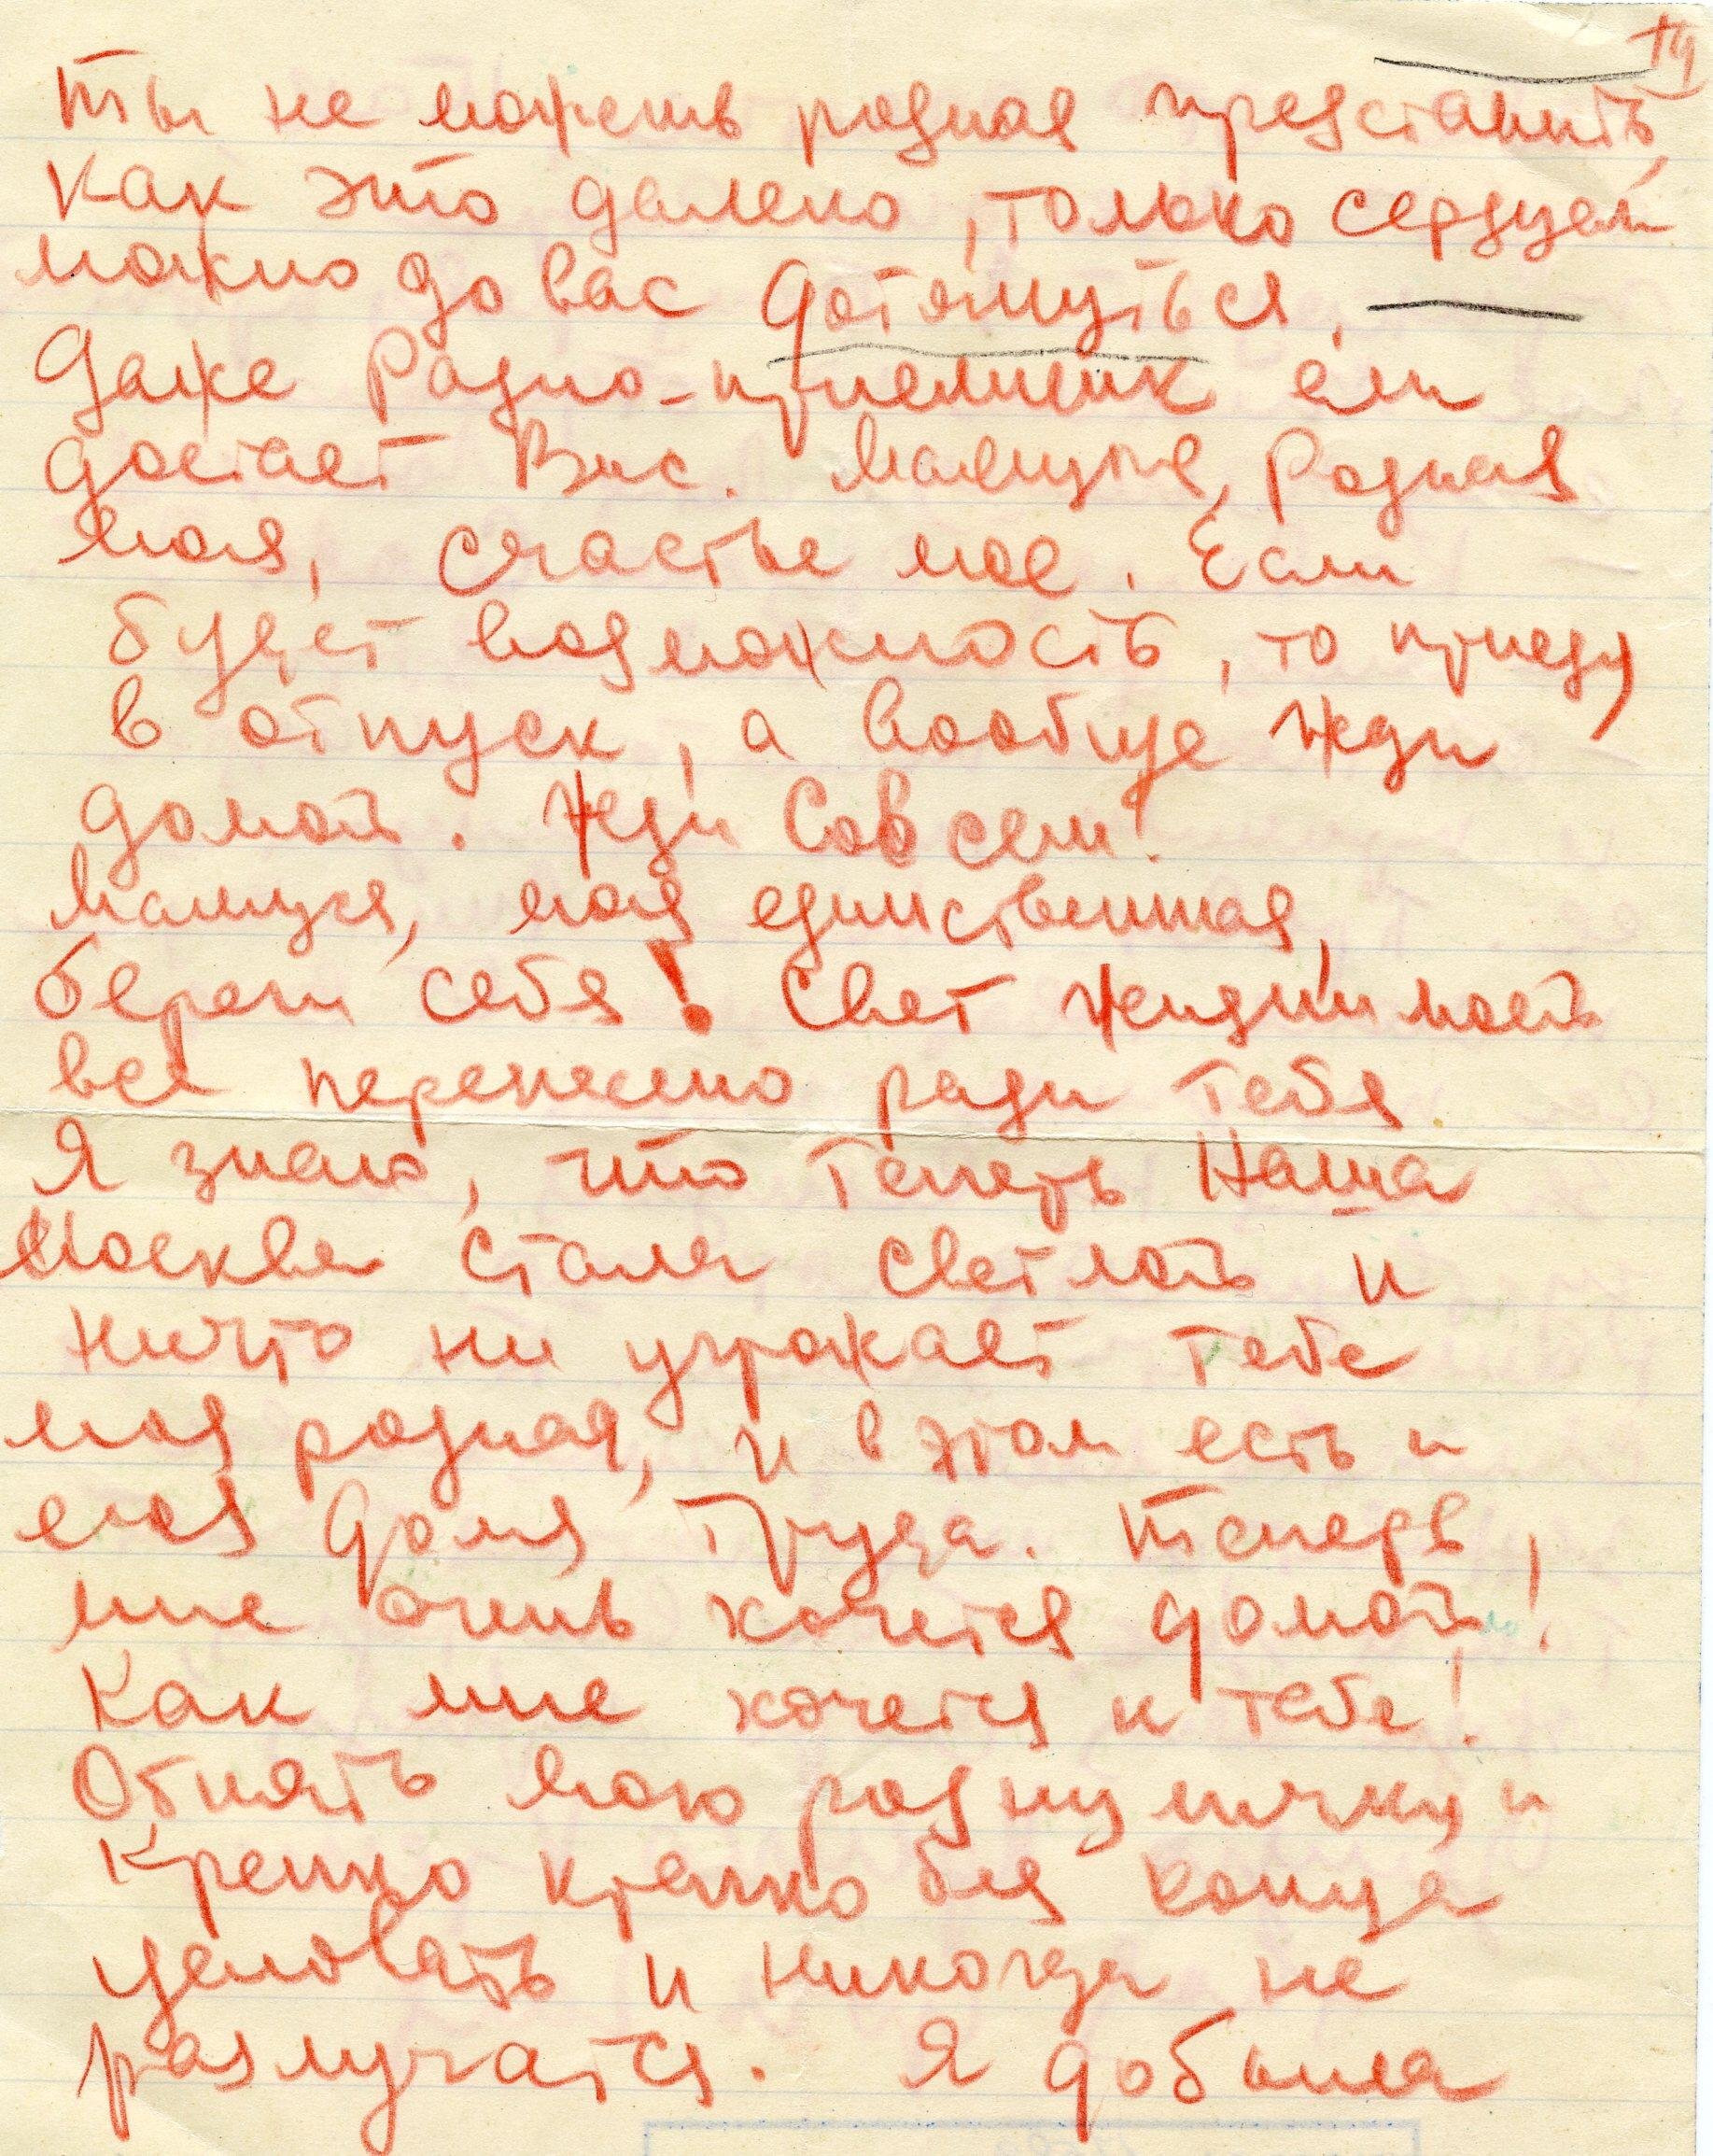 19
Ты не можешь родная представить,
как это далеко, только сердцем
можно до вас дотянуться.
Даже Радио-приемник еле
достает Вас. Мамуля, Родная
моя, счастье мое. Если
будет возможность, то приеду
в отпуск, а вообще жди
домой. Жди Совсем!
Мамуля, моя единственная,
береги себя! Свет жизни моей
все перенесено ради тебя
Я знаю, что Теперь Наша
Москва стала светлой и
ничто ни угрожает тебе
моя родная, и в этом есть и
моя доля Труда. Теперь,
мне очень хочется домой!
Как мне хочется к тебе!
Обнять мою роднуличку и
Крепко крепко без конца
целовать и никогда не
разлучатся. Я добыла